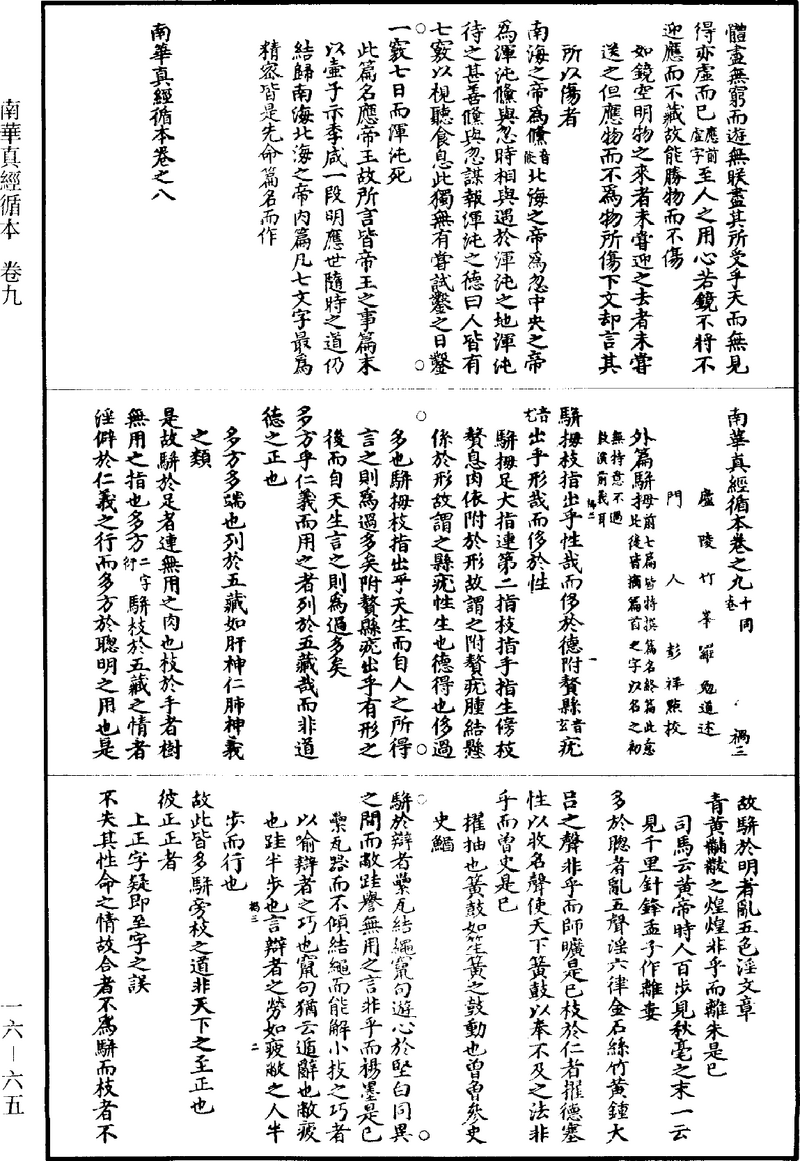 南華真經循本　卷九
一六－六五
體盡無窮而遊無朕盡其所受乎天而無見
得亦虛而已應前虛字至人之用心若鏡不將不
迎應而不藏故能勝物而不傷
如鏡空明物之來者未嘗迎之去者未嘗
送之但應物而不為物所傷下文却言其
所以傷者
南海之帝為儵音倐北海之帝為忽中央之帝
為渾沌儵與忽時相與遇於渾沌之地渾沌
待之甚善儵與忽謀報渾沌之德曰人皆有
七竅以視聽食息此獨無有嘗試鑿之日鑿
一竅七日而渾沌死
此篇名應帝王故所言皆帝王之事篇末
以壷子示季咸一段明應世隨時之道仍
結歸南海北海之帝內篇凡七文字最為
精密皆是先命篇名而作
南華真經循本卷之八
南華真經循本卷之九十同卷　禍三
廬陵竹峯羅勉道述
門人彭祥點校
外篇駢拇前七篇皆特撰篇名終篇此意
才比後皆摘篇首之字以名之初
無特意不過
敷演前義耳
駢拇枝指出乎性哉而侈於德附贅縣音玄疣
音尤出乎形哉而侈於性
駢拇足大指連第二指枝指手指生傍枝
贅息肉依附於形故謂之附贅疣腫結懸
係於形故謂之縣疣性生也德得也侈過
多也駢拇枝指出乎天生而自人之所得
言之則為過多矣附贅縣疣出乎有形之
後而自天生言之則為過多矣
多方乎仁義而用之者列於五藏哉而非道
德之正也
多方多端也列於五藏如肝神仁肺神義
之類
是故駢於足者連無用之肉也枝於手者樹
無用之指也多方二字衍駢枝於五藏之情者
淫僻於仁義之行而多方於聰明之用也是
故駢於明者亂五色淫文章
青黃黼黻之煌煌非乎而離朱是已
司馬云黃帝時人百步見秋毫之末一云
見千里針鋒孟子作離婁
多於聰者亂五聲淫六律金石絲竹黃鍾大
呂之聲非乎而師曠是已枝於仁者擢德塞
性以收名聲使天下簧鼓以奉不及之法非
乎而曾史是已
擢抽也簧鼓如笙簧之鼓動也曾曾參史
史鰌
駢於辯者纍瓦結繩竄句遊心於堅白同異
之間而敝跬譽無用之言非乎而楊墨是已
纍瓦器而不傾結繩而能解小技之巧者
以喻辯者之巧也竄句猶云遁辭也敝疲
也跬半步也言辯者之勞如疲敝之人半
步而行也
故此皆多駢旁枝之道非天下之至正也
彼正正者
上正字疑即至字之誤
不失其性命之情故合者不為駢而枝者不